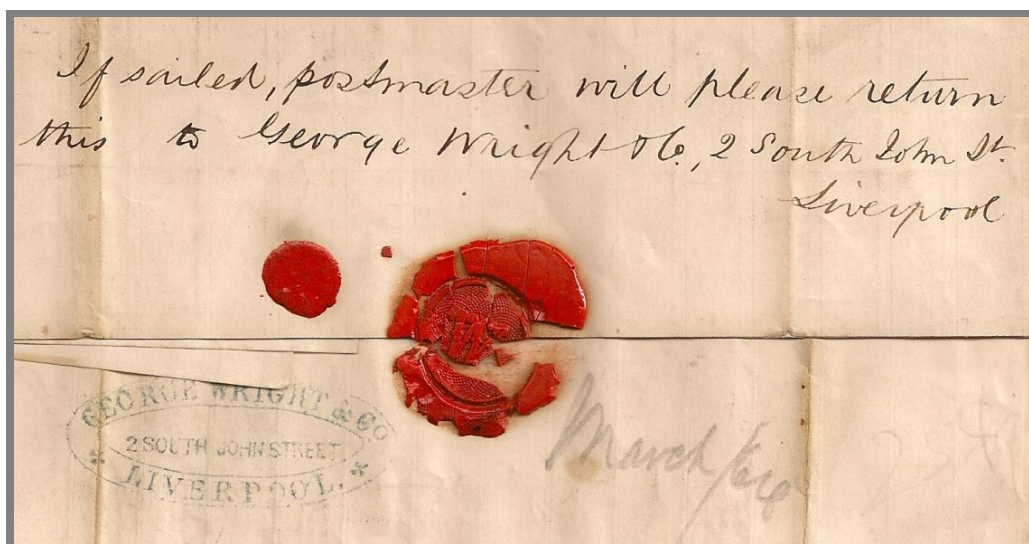 If sailed, postmaster will please return
this to George Wright & Co, 2 South John St.
Liverpool
GEORGE WRIGHT & Co
2 SOUTH JOHN STREET
LIVERPOOL.
March /66